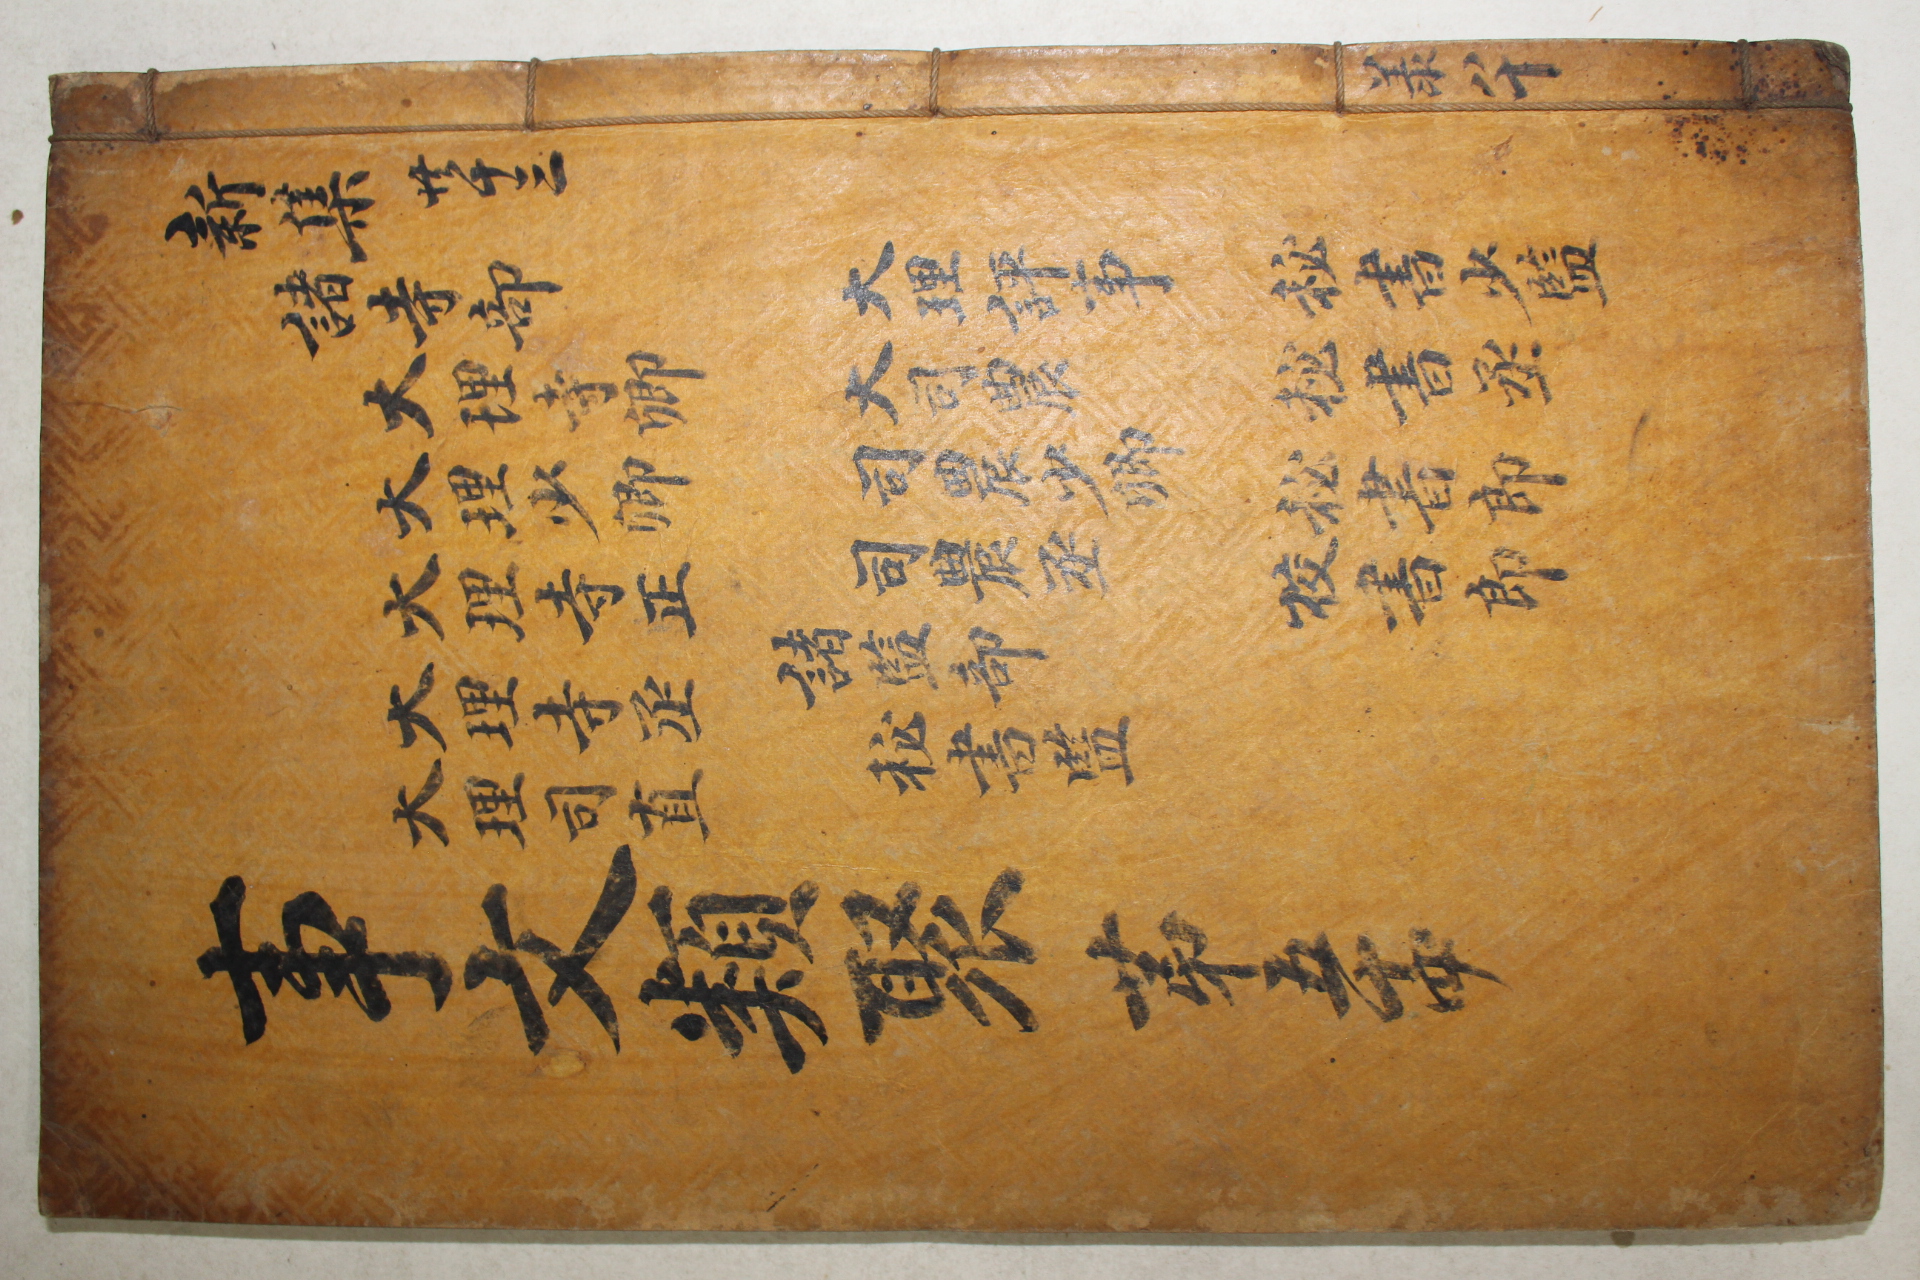 共八十
新集
諸寺部
大理寺卿
大理少卿
大理寺正
大理寺丞
大理司直
大理評事
大司農
司農少卿
司農丞
諸監部
秘書監
秘書少監
秘書丞
秘書郎
校書郎
事文類聚 苐五十